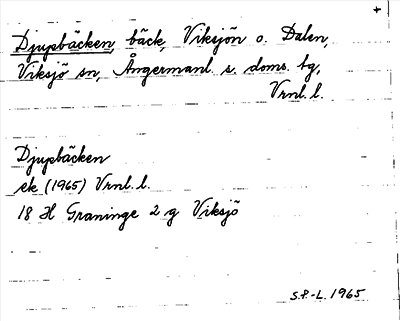 +
Djupbäcken, bäck, Viksjön o. Dalen,
Viksjö sn, Ångermanl. s. doms. bg,
Vrnl. l.
Djupbäcken
ek (1965) Vrnl. l.
18 H Graninge 2 g Viksjö
S.P.-L. 1965